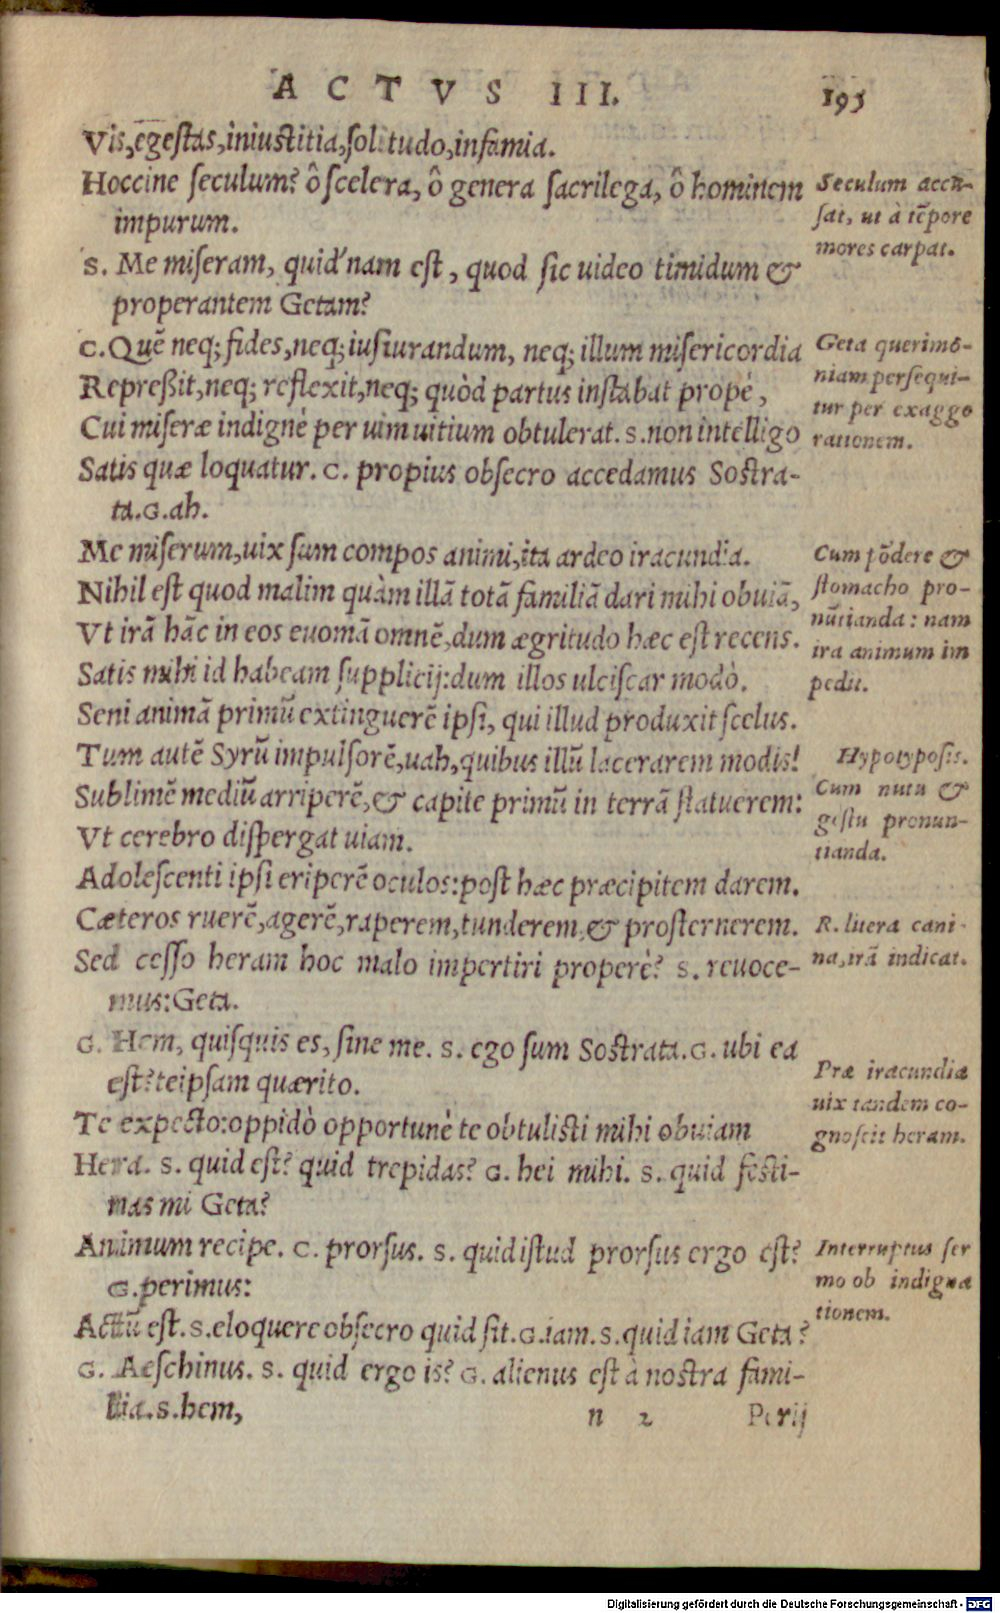 ACTVS III. 195
Vis, egestas, iniustitia, solitudo, infamia.
Hoccine seculum? ô scelera, ô genera sacrilega, ô hominem
impurum.
S. Me miseram, quid'nam est, quod sic uideo timidum &
properantem Getam?
C. Quẽ neq; fides, neq; iusiurandum, neq; illum misericordia
Repreßit, neq; reflexit, neq; quòd partus instabat propè,
Cui miseræ indignè per uim uitium obtulerat. S. non intelligo
Satis quæ loquatur. C. propius obsecro accedamus Sostra-
ta. G. ah.
Me miserum, uix sum compos animi, ita ardeo iracundia.
Nihil est quod malim quàm illã totã familiã dari mihi obuiã,
Vt irã hãc in eos euomã omnẽ, dum ægritudo hæc est recens.
Satis mihi id habeam supplicij: dum illos ulciscar modò.
Seni animã primũ extinguerẽ ipsi, qui illud produxit scelus.
Tum autẽ Syrũ impulsorẽ, uah, quibus illũ lacerarem modis!
Sublimẽ mediũ arriperẽ, & capite primũ in terrã statuerem:
Vt cerebro dispergat uiam.
Adolescenti ipsi eriperẽ oculos: post hæc præcipitem darem.
Cæteros ruerẽ, agerẽ, raperem, tunderem, & prosternerem.
Sed cesso heram hoc malo impertiri properè? S. reuoce-
mus: Geta.
G. Hem, quisquis es, sine me. S. ego sum Sostrata. G. ubi ea
est? teipsam quærito.
Te expecto: oppidò opportunè te obtulisti mihi obuiam
Hera. S. quid est? quid trepidas? G. hei mihi. S. quid festi-
nas mi Geta?
Animum recipe. C. prorsus. S. quid istud prorsus ergo est?
G. perimus:
Actũ est. S. eloquere obsecro quid sit. G. iam. S. quid iam Geta?
G. Aeschinus. S. quid ergo is? G. alienus est à nostra fami-
lia. S. hem,
n 2 Perij
Seculum accu-
sat, ut à tẽpore
mores carpat.
Geta querimo-
niam persequi-
tur per exagge
rationem.
Cum põdere &
stomacho pro-
nũtianda: nam
ira animum im
pedit.
Hypotyposis.
Cum nutu &
gestu pronun-
tianda.
R. litera cani-
na, irã indicat.
Præ iracundia
uix tandem co-
gnoscit heram.
Interruptus ser
mo ob indigna
tionem.
Digitalisierung gefördert durch die Deutsche Forschungsgemeinschaft - DFG